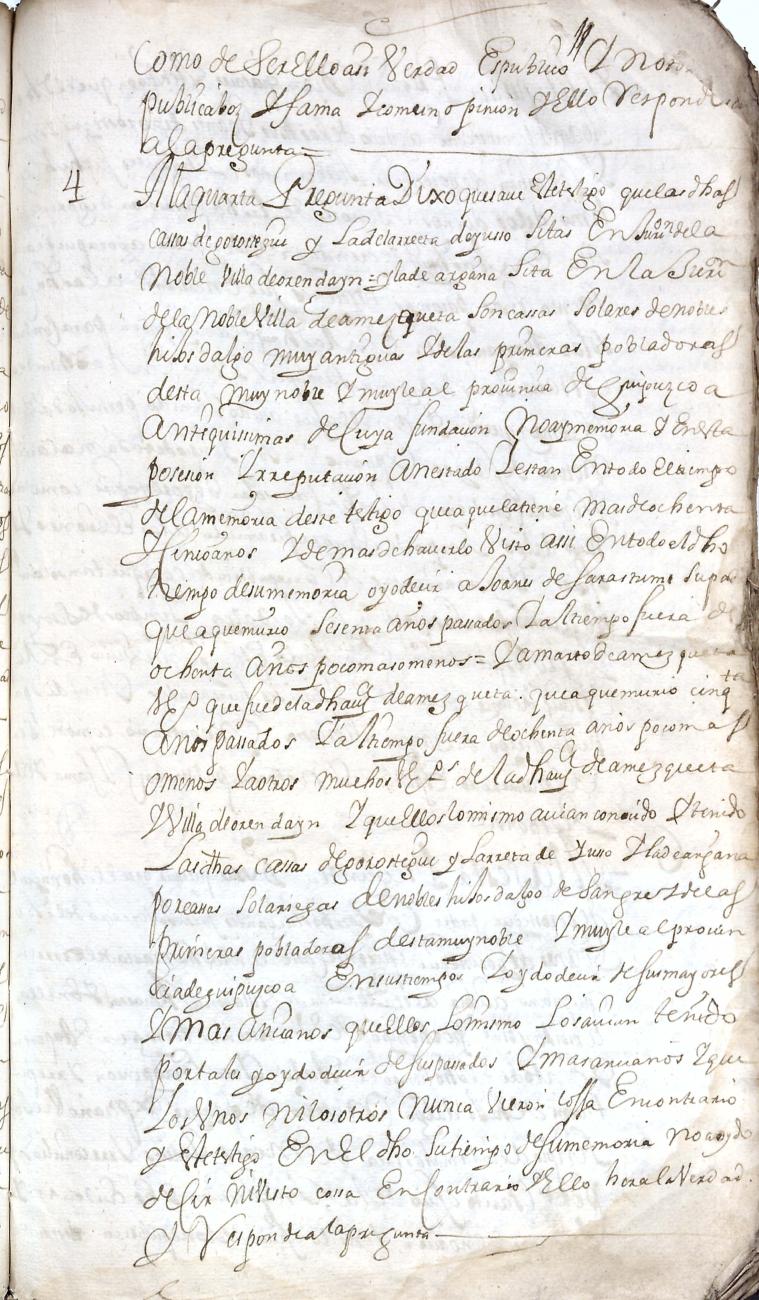 Como de ser ello assi Verdad Es publico Y noto
publica boz Y fama Y comun opinion Y Ello Responde
a la pregunta =
4 A la quarta Pregunta Dixo que save Este testigo que las dhas
cassas de gorostegui y La de Larreta de yusso sitas En Jurin de la
Noble Villa de orendayn = y la de argana sita En la Jurin
de la Noble Villa de amezqueta son cassas Solares de nobles
hijos dalgo muy antiguas Y de las primeras pobladoras
desta muy noble Y muy leal provincia de Guipuzcoa
Antiquissimas de Cuya fundacion No ay memoria Y En esta
posesion Y rreputacion An estado Y estan En todo El tiempo
de la memoria deste testigo que a que la tiene mas de ochenta
Y cinco anos Y demas de haverlo Visto assi En todo el dho
tiempo de su memoria oyo decir a Joanes de Sarastume su pa
que a que murio sesenta años passados Y al tiempo fuera de
ochenta Años poco mas o menos = Y a marto de amezqueta
Vº que fue de la dha Vª de amezqueta que a que murio cinqta
Años passados Y al tiempo fuera de ochenta anos poco mas
o menos Y a otros muchos Vºs de la dha Vª de amezqueta
Y Villa de orendayn Y que Ellos lo mismo avian conocido Y tenido
Las dhas cassas de gorostegui y Larreta de Yusso Y la de argana
por cassas solariegas de nobles hijos dalgo de sangre Y de las
primeras pobladoras desta muy noble Y muy leal provin
cia de guipuzcoa En sus tiempos Y oydo decir de sus mayores
Y mas Ancianos que Ellos Lo mismo Los avian tenido
por tales y oydo decir de sus passados Y mas ancianos Y que
Los Unos ni los otros Nunca Vieron cossa En contrario
y Este testigo En El dho su tiempo de su memoria no a oydo
desir ni Visto cossa En Contrario Y Ello hera la Verdad
Y Respondia a la pregunta